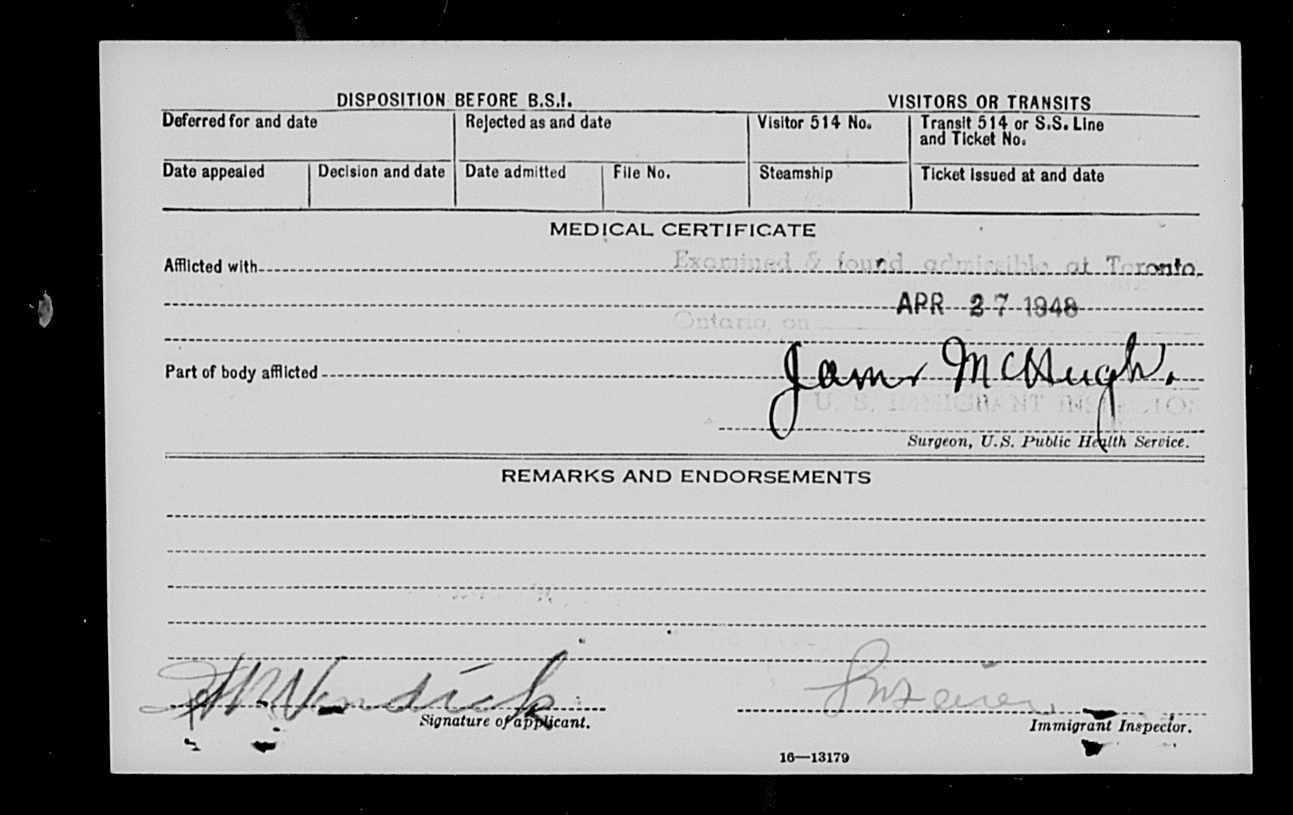 DISPOSITION BEFORE B.S.I. VISITORS OR TRANSITS
Deferred for and date Rejected as and date Visitor 514 No. Transit 514 or S.S. Line and Ticket No.
Date appealed Decision and date Date admitted File No. Steamship Ticket issued at and date
MEDICAL CERTIFICATE
Afflicted with Examined & found admissible at Toronto,
APR 27 1948
Ontario, on
Part of body afflicted James McHugh.
U. S. IMMIGRANT INSPECTOR
Surgeon, U.S. Public Health Service.
REMARKS AND ENDORSEMENTS
Signature of applicant. Immigrant Inspector.
16—13179